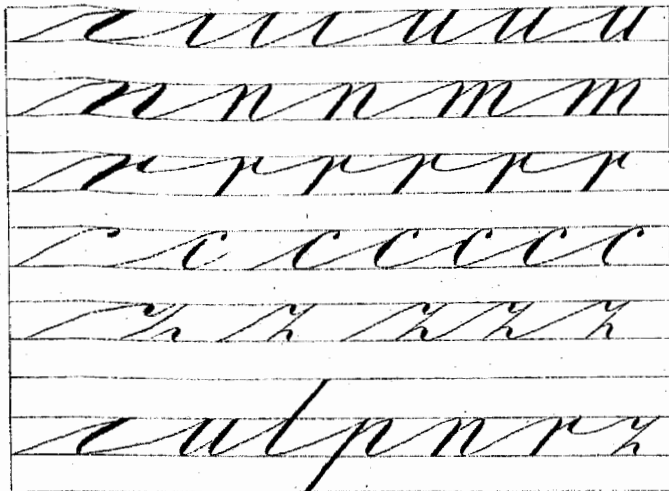 ı ı ı ı u u u
n n n m m
r r r r r r
c c c c c c c
z z z z z
ı u l p n r z